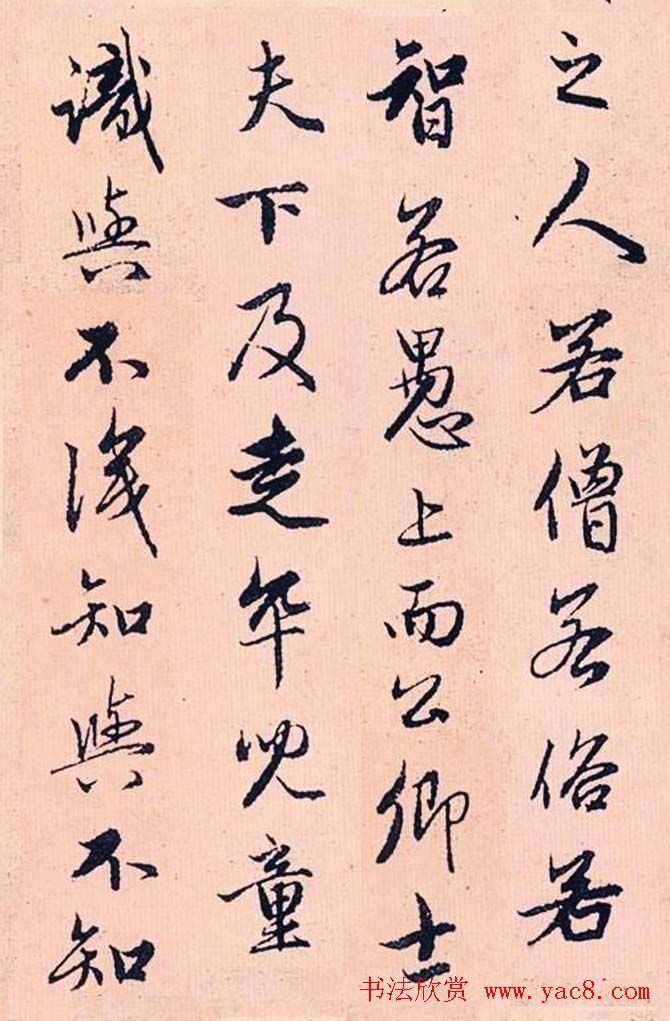 之人若僧若俗若
智若愚上而公卿士
夫下及走卒兒童
識與不識知與不知
书法欣赏 www.yac8.com